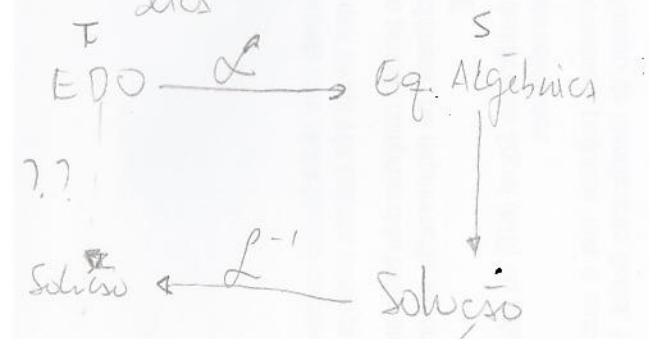 T S
EDO ℒ Eq. Algébrica
??
Solução ℒ⁻¹ Solução